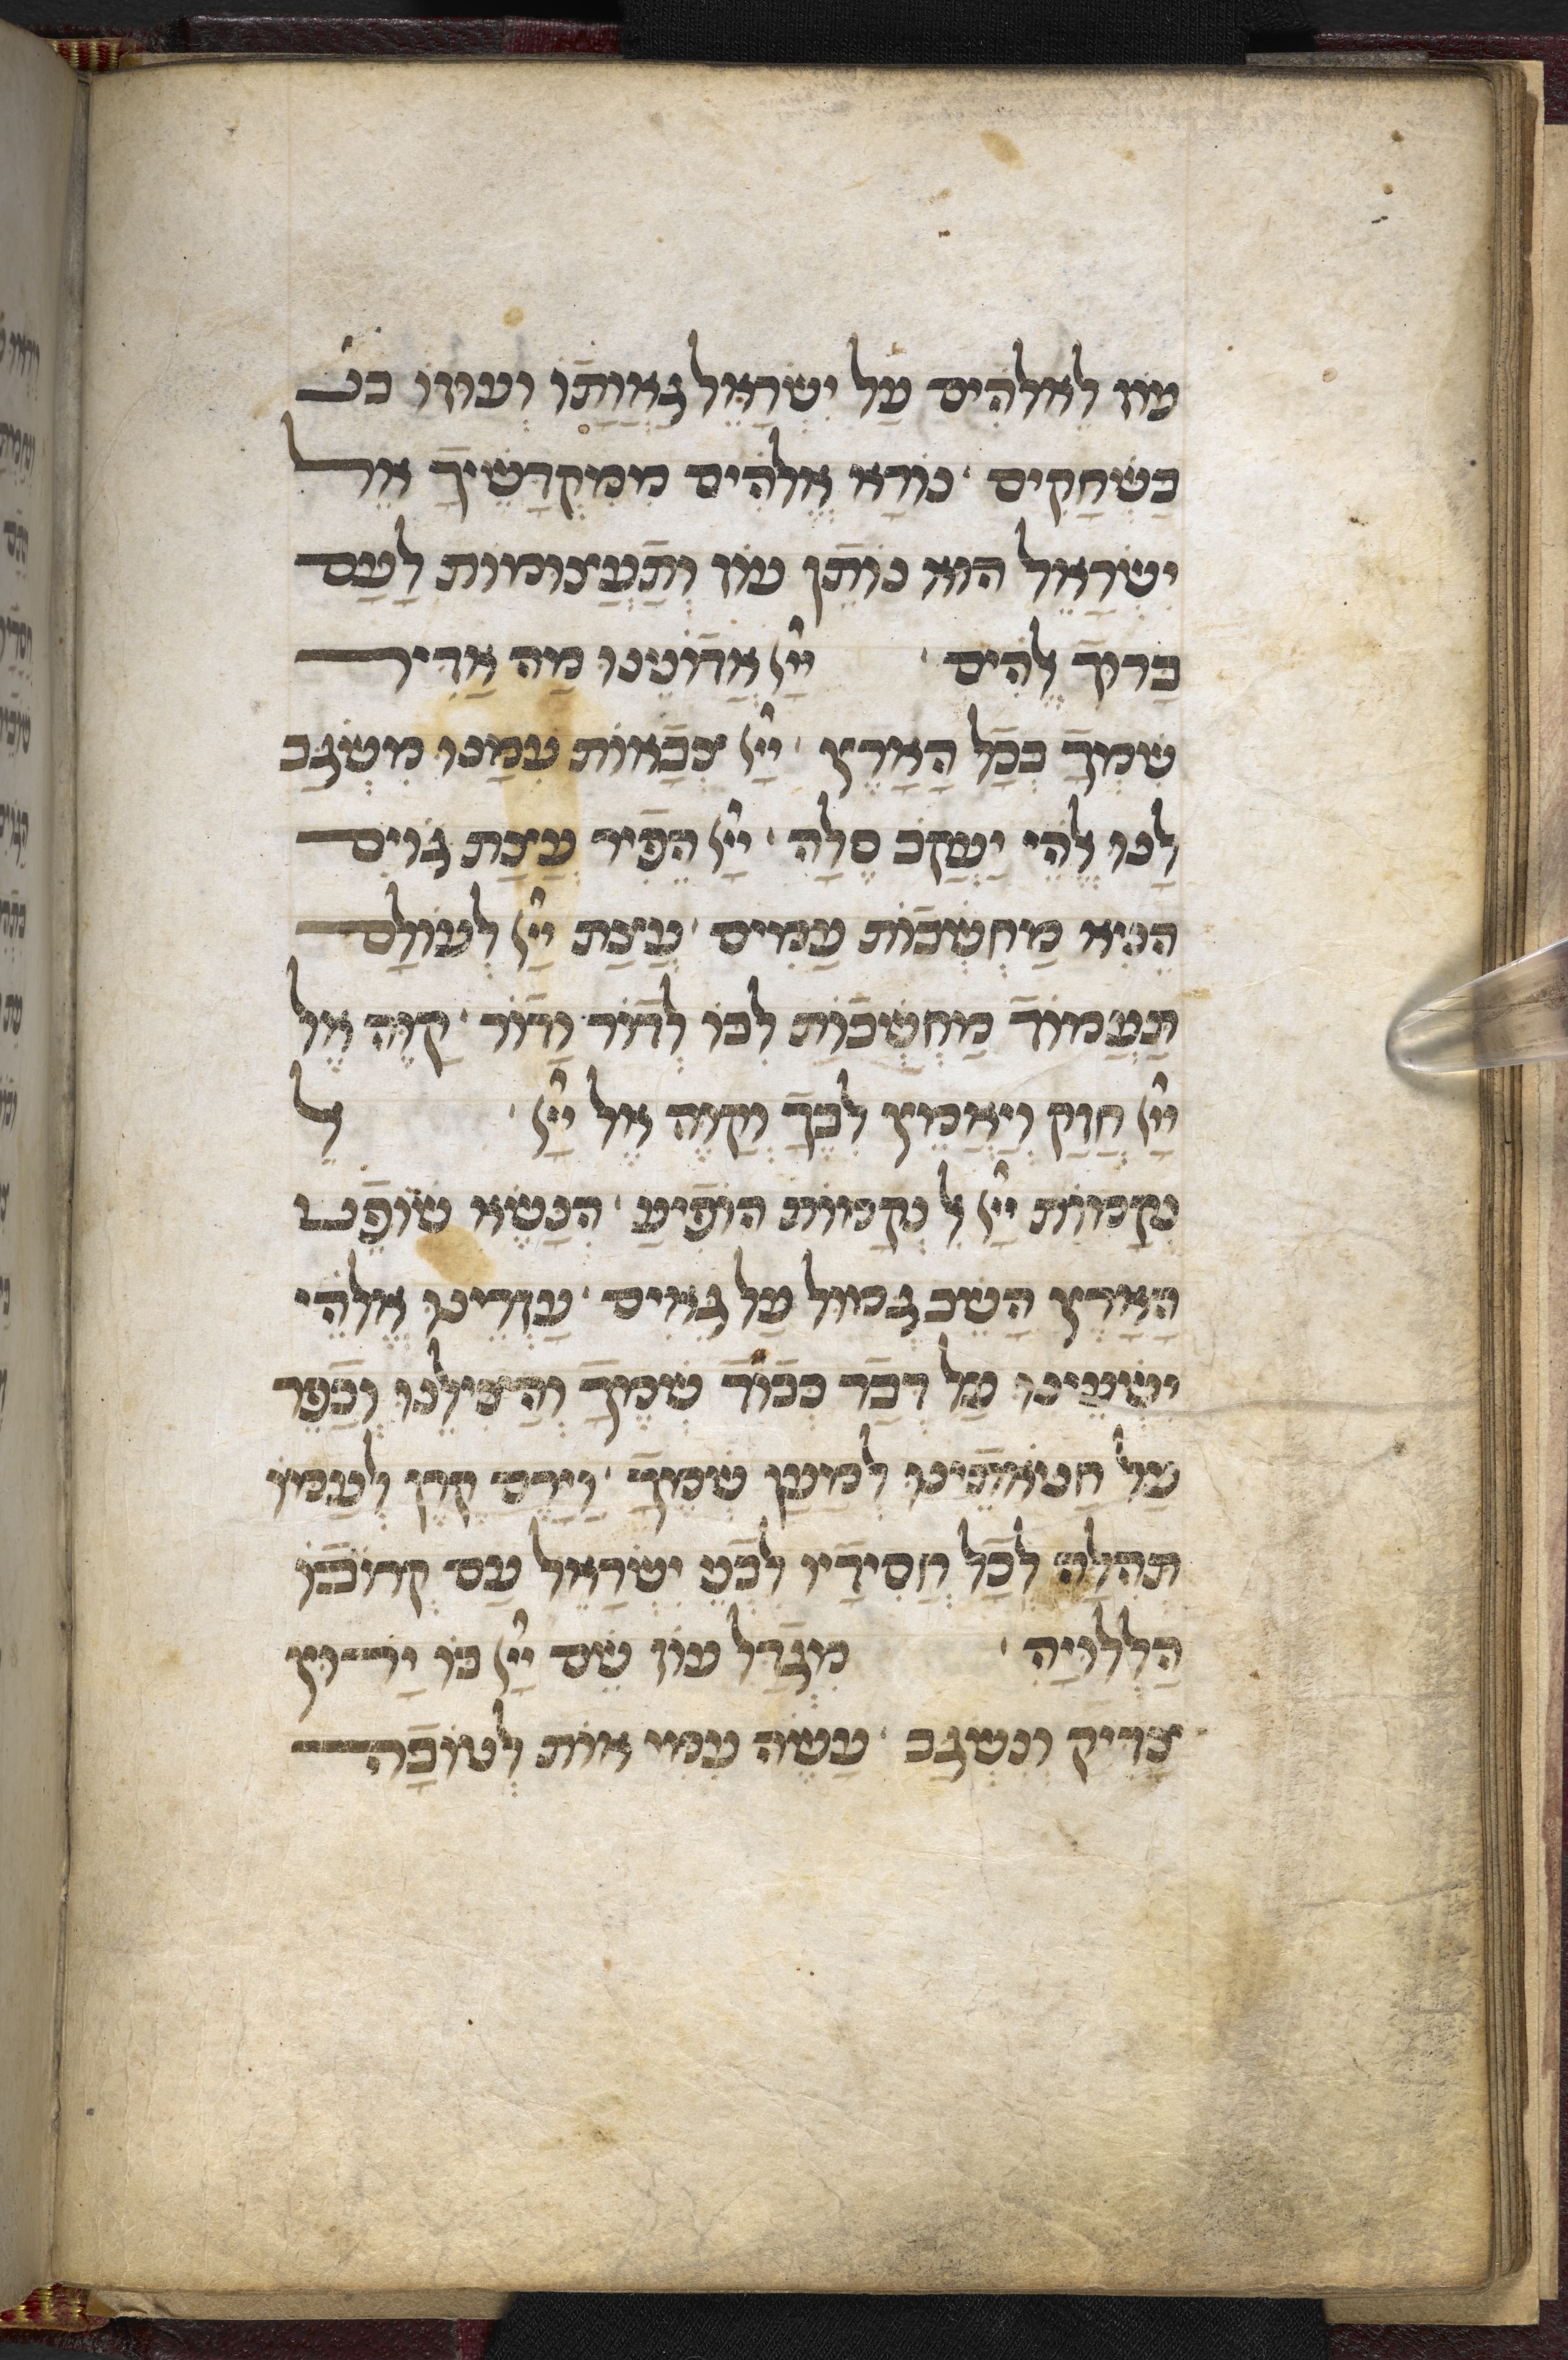 עוז לאלהים על ישראל גאותו ועוזו בש
בשחקים נורא אלהים ממקדשיך אל
ישראל הוא נותן עוז ותעצומות לעם
ברוך אלהים ייי אדוננו מה אדיר
שמך בכל הארץ ייי צבאות עמנו משגב
לנו אלהי יעקב סלה ייי הפיר עצת גוים
הניא מחשבות עמים עצת ייי לעולם
תעמוד מחשבות לבו לדור ודור קוה אל
ייי חזק ויאמץ לבך וקוה אל ייי אל
נקמות ייי אל נקמות הופיע הנשא שופט
הארץ השב גמול על גאים עזרינו אלהי
ישעינו על דבר כבוד שמך והצילנו וכפר
על חטאתינו למען שמך וירם קרן לעמו
תהלה לכל חסידיו לבני ישראל עם קרובו
הללויה מגדל עוז שם ייי בו ירוץ
צדיק ונשגב עשה עמי אות לטובה